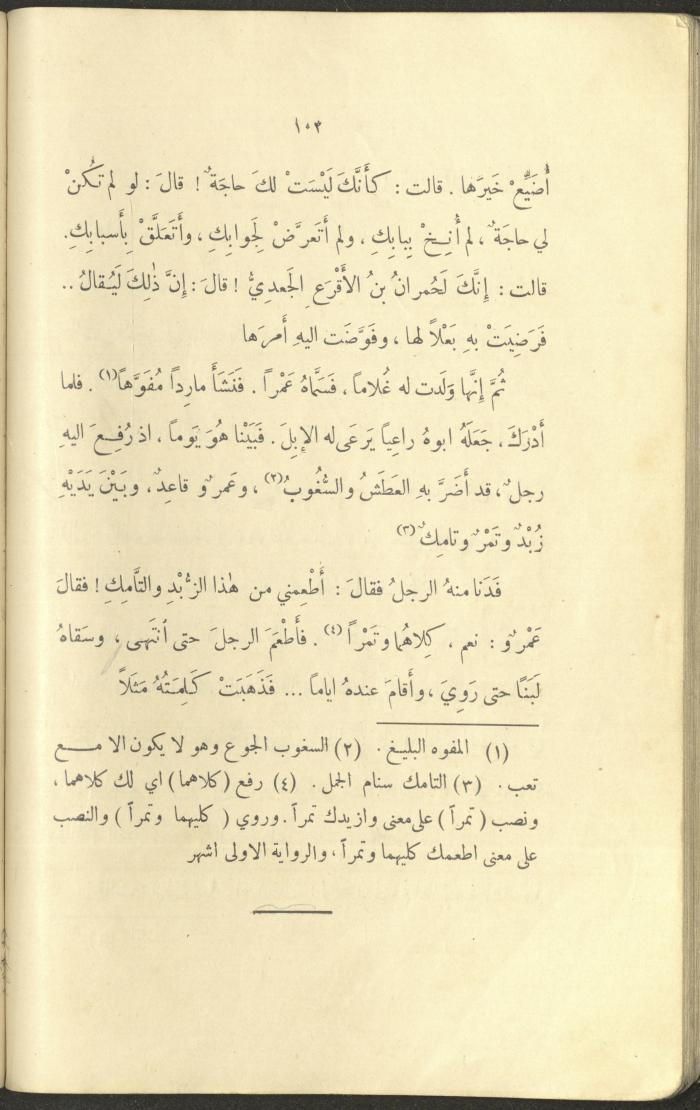 ١٠٣
أُضَيِّعْ خَيرَها . قالت : كأَنَّكَ لَيْسَتْ لكَ حاجَةٌ ! قالَ : لو لم تكُنْ
لي حاجَةٌ ، لم أُنِخْ بِبابِكِ ، ولم أَتَعرَّضْ لِجَوابِكِ ، وأَتَعَلَّقْ بِأَسبابِكِ .
قالت : إِنَّكَ لَحُمرانُ بنُ الأَقْرَعِ الجَعديُّ ! قالَ : إِنَّ ذٰلِكَ لَيُقالُ ..
فَرَضِيَتْ بهِ بَعْلاً لها ، وفَوَّضَت اليهِ أَمرَها
ثُمَّ إِنَّها وَلَدت له غُلاماً ، فَسَمَّاهُ عَمْراً . فَنَشَأَ مارِداً مُفَوَّهاً (١) . فلما
أَدْرَكَ ، جَعَلَهُ ابوهُ راعِياً يَرعَى له الإِبلَ . فَبَيْنا هُوَ يَوماً ، اذ رُفِعَ اليهِ
رجلٌ ، قد أَضَرَّ بهِ العَطَشُ والسُّغُوبُ (٢) ، وعَمرٌو قاعِدٌ ، وبَيْنَ يَدَيْهِ
زُبْدٌ وتَمْرٌ وتامِكٌ (٣)
فَدَنا منهُ الرجلُ فقالَ : أَطْعِمني من هٰذا الزُّبْدِ والتَّامِكِ ! فقالَ
عَمْرٌو : نعم ، كِلاهُما وتَمْراً (٤) . فأَطْعَمَ الرجلَ حتى ٱنتَهى ، وسَقاهُ
لَبَنًا حتى رَوِيَ ، وأَقامَ عندهُ اياماً ... فَذَهَبَتْ كَلِمَتُهُ مَثَلاً
(١) المفوه البليغ . (٢) السغوب الجوع وهو لا يكون الا مـــع
تعب . (٣) التامك سنام الجمل . (٤) رفع (كلاهما) اي لك كلاهما ،
ونصب ( تمراً ) على معنى وازيدك تمراً . وروي ( كليهما وتمراً ) والنصب
على معنى اطعمك كليهما وتمراً ، والرواية الاولى اشهر